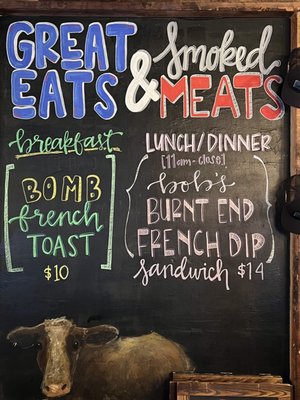 GREAT
EATS
& Smoked
MEATS
breakfast
BOMB
french
TOAST
$10
LUNCH/DINNER
[11am-close]
bob's
BURNT END
FRENCH DIP
sandwich $14